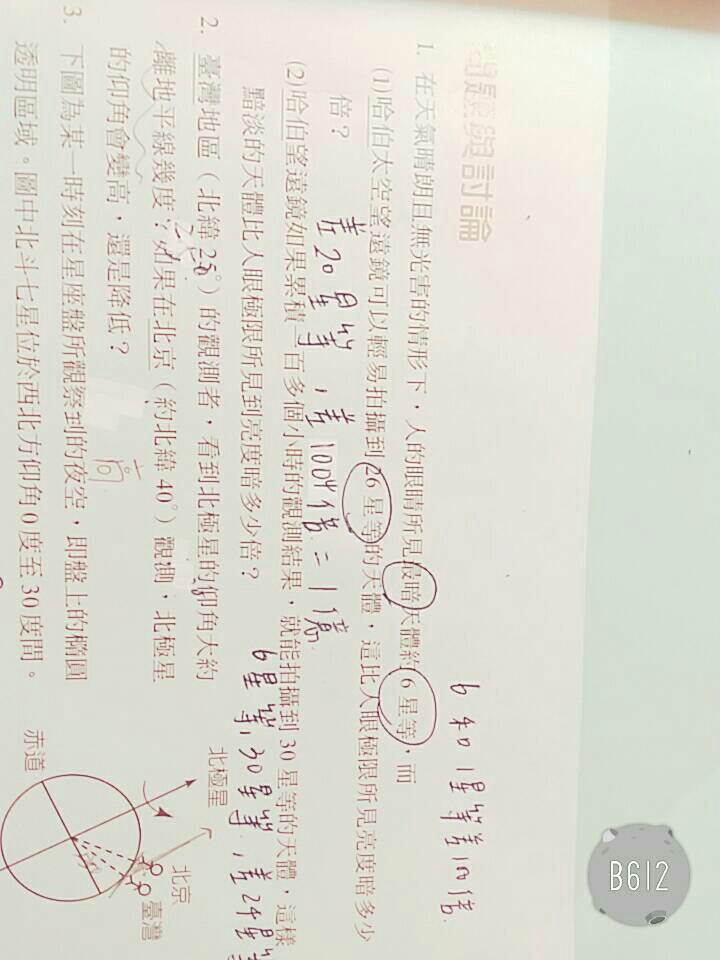 問題與討論
6和1星等差100倍
1. 在天氣晴朗且無光害的情形下，人的眼睛所見最暗天體約6星等，而
(1)哈伯太空望遠鏡可以輕易拍攝到26星等的天體，這比人眼極限所見亮度暗多少
倍？
差20星等，差100⁴倍=1億
(2)哈伯望遠鏡如果累積一百多個小時的觀測結果，就能拍攝到30星等的天體，這樣
黯淡的天體比人眼極限所見到亮度暗多少倍？
6星等，30星等，差24星等
2. 臺灣地區（北緯25°）的觀測者，看到北極星的仰角大約
離地平線幾度？如果在北京（約北緯40°）觀測，北極星
的仰角會變高，還是降低？
3. 下圖為某一時刻在星座盤所觀察到的夜空，即盤上的橢圓
透明區域。圖中北斗七星位於西北方仰角0度至30度間。
北極星
北京
臺灣
赤道
B612